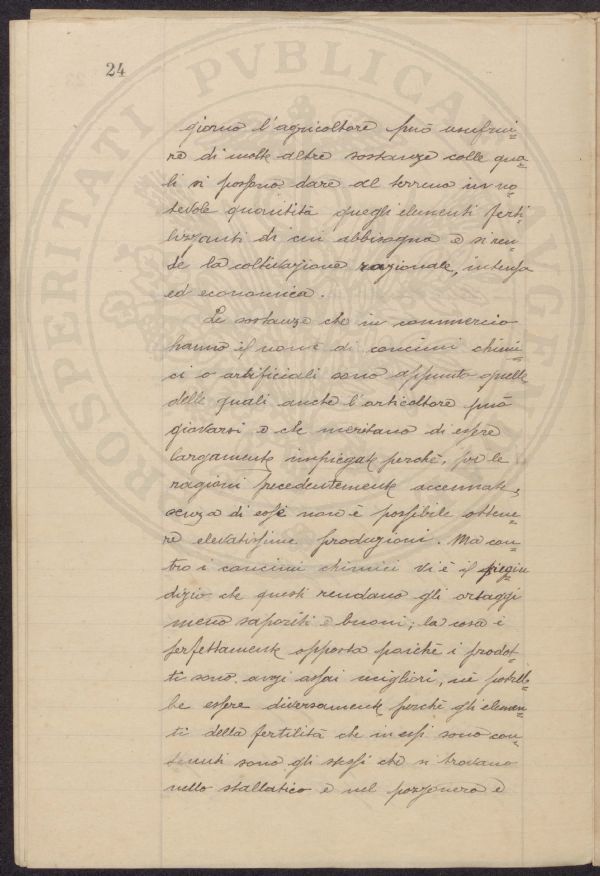 24
PROSPERITATI PVBLICAE AVGENDAE
giorno l'agricoltore può usufrui=
re di molte altre sostanze colle qua=
li si possono dare al terreno in no=
tevole quantità quegli elementi ferti=
lizzanti di cui abbisogna e si ren=
de la coltivazione razionale, intensa
ed economica.
Le sostanze che in commercio
hanno il nome di concimi chimi=
ci o artificiali sono appunto quelle
delle quali anche l'orticoltore può
giovarsi e che meritano di essere
largamente impiegate perchè, per le
ragioni precedentemente accennate,
senza di essi non è possibile ottene=
re elevatissime produzioni. Ma con=
tro i concimi chimici vi è il pregiu
dizio che questi rendano gli ortaggi
meno saporiti e buoni; la cosa è
perfettamente opposta poichè i prodot=
ti sono anzi assai migliori, nè potreb=
be essere diversamente perchè gli elemen=
ti della fertilità che in essi sono con=
tenuti sono gli stessi che si trovano
nello stallatico e nel pozzonero e